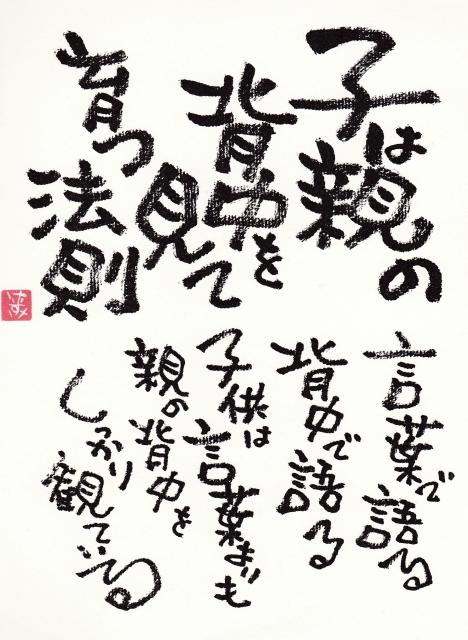 子は親の
背中を
見て
育つ
法則
言葉で語る
背中で語る
子供は
言葉よりも
親の背中を
しっかり
観ている